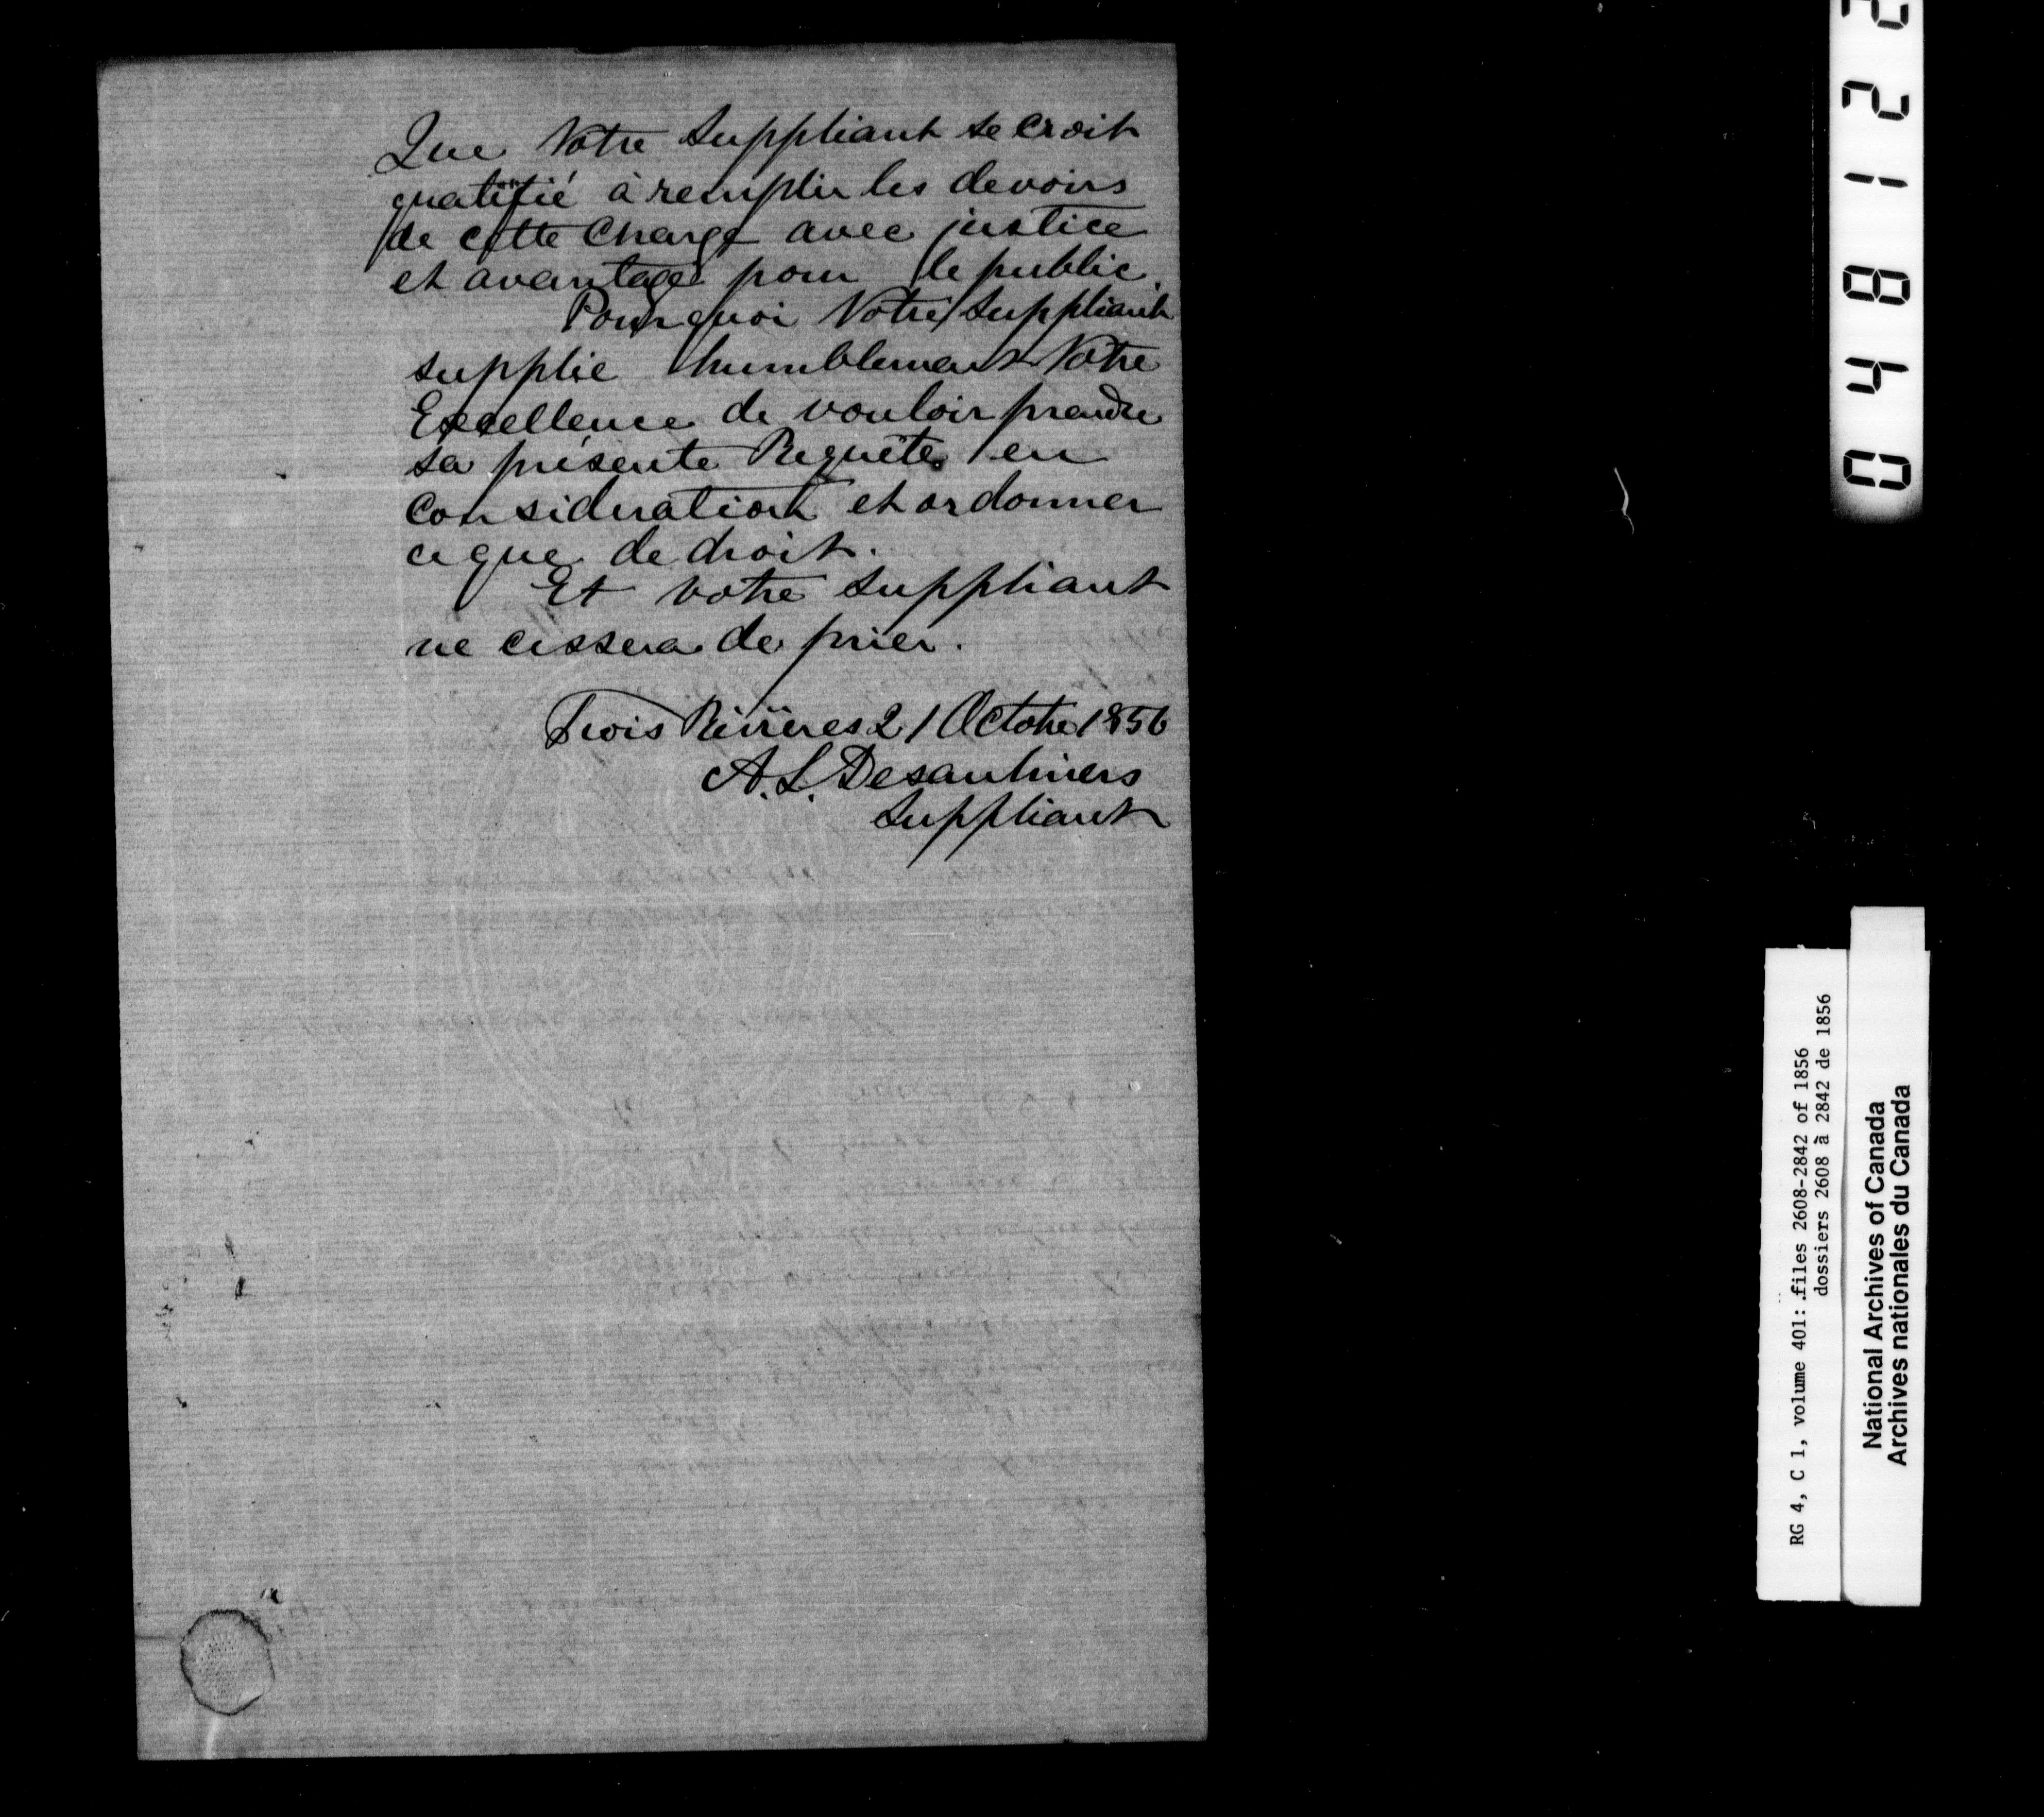 Que Votre Suppliant se croit
qualifié à remplir les devoirs
de cette Charge avec justice
et avantage pour le public.
Pourquoi Votre Suppliant
supplie humblement Votre
Excellence de vouloir prendre
sa présente Requête en
Considération et ordonner
ce que de droit.
Et votre Suppliant
ne cessera de prier.
Trois Rivières 21 Octobre 1856
A. L. Desaulniers
Suppliant
048122
RG 4, C 1, volume 401: files 2608-2842 of 1856
dossiers 2608 à 2842 de 1856
National Archives of Canada
Archives nationales du Canada